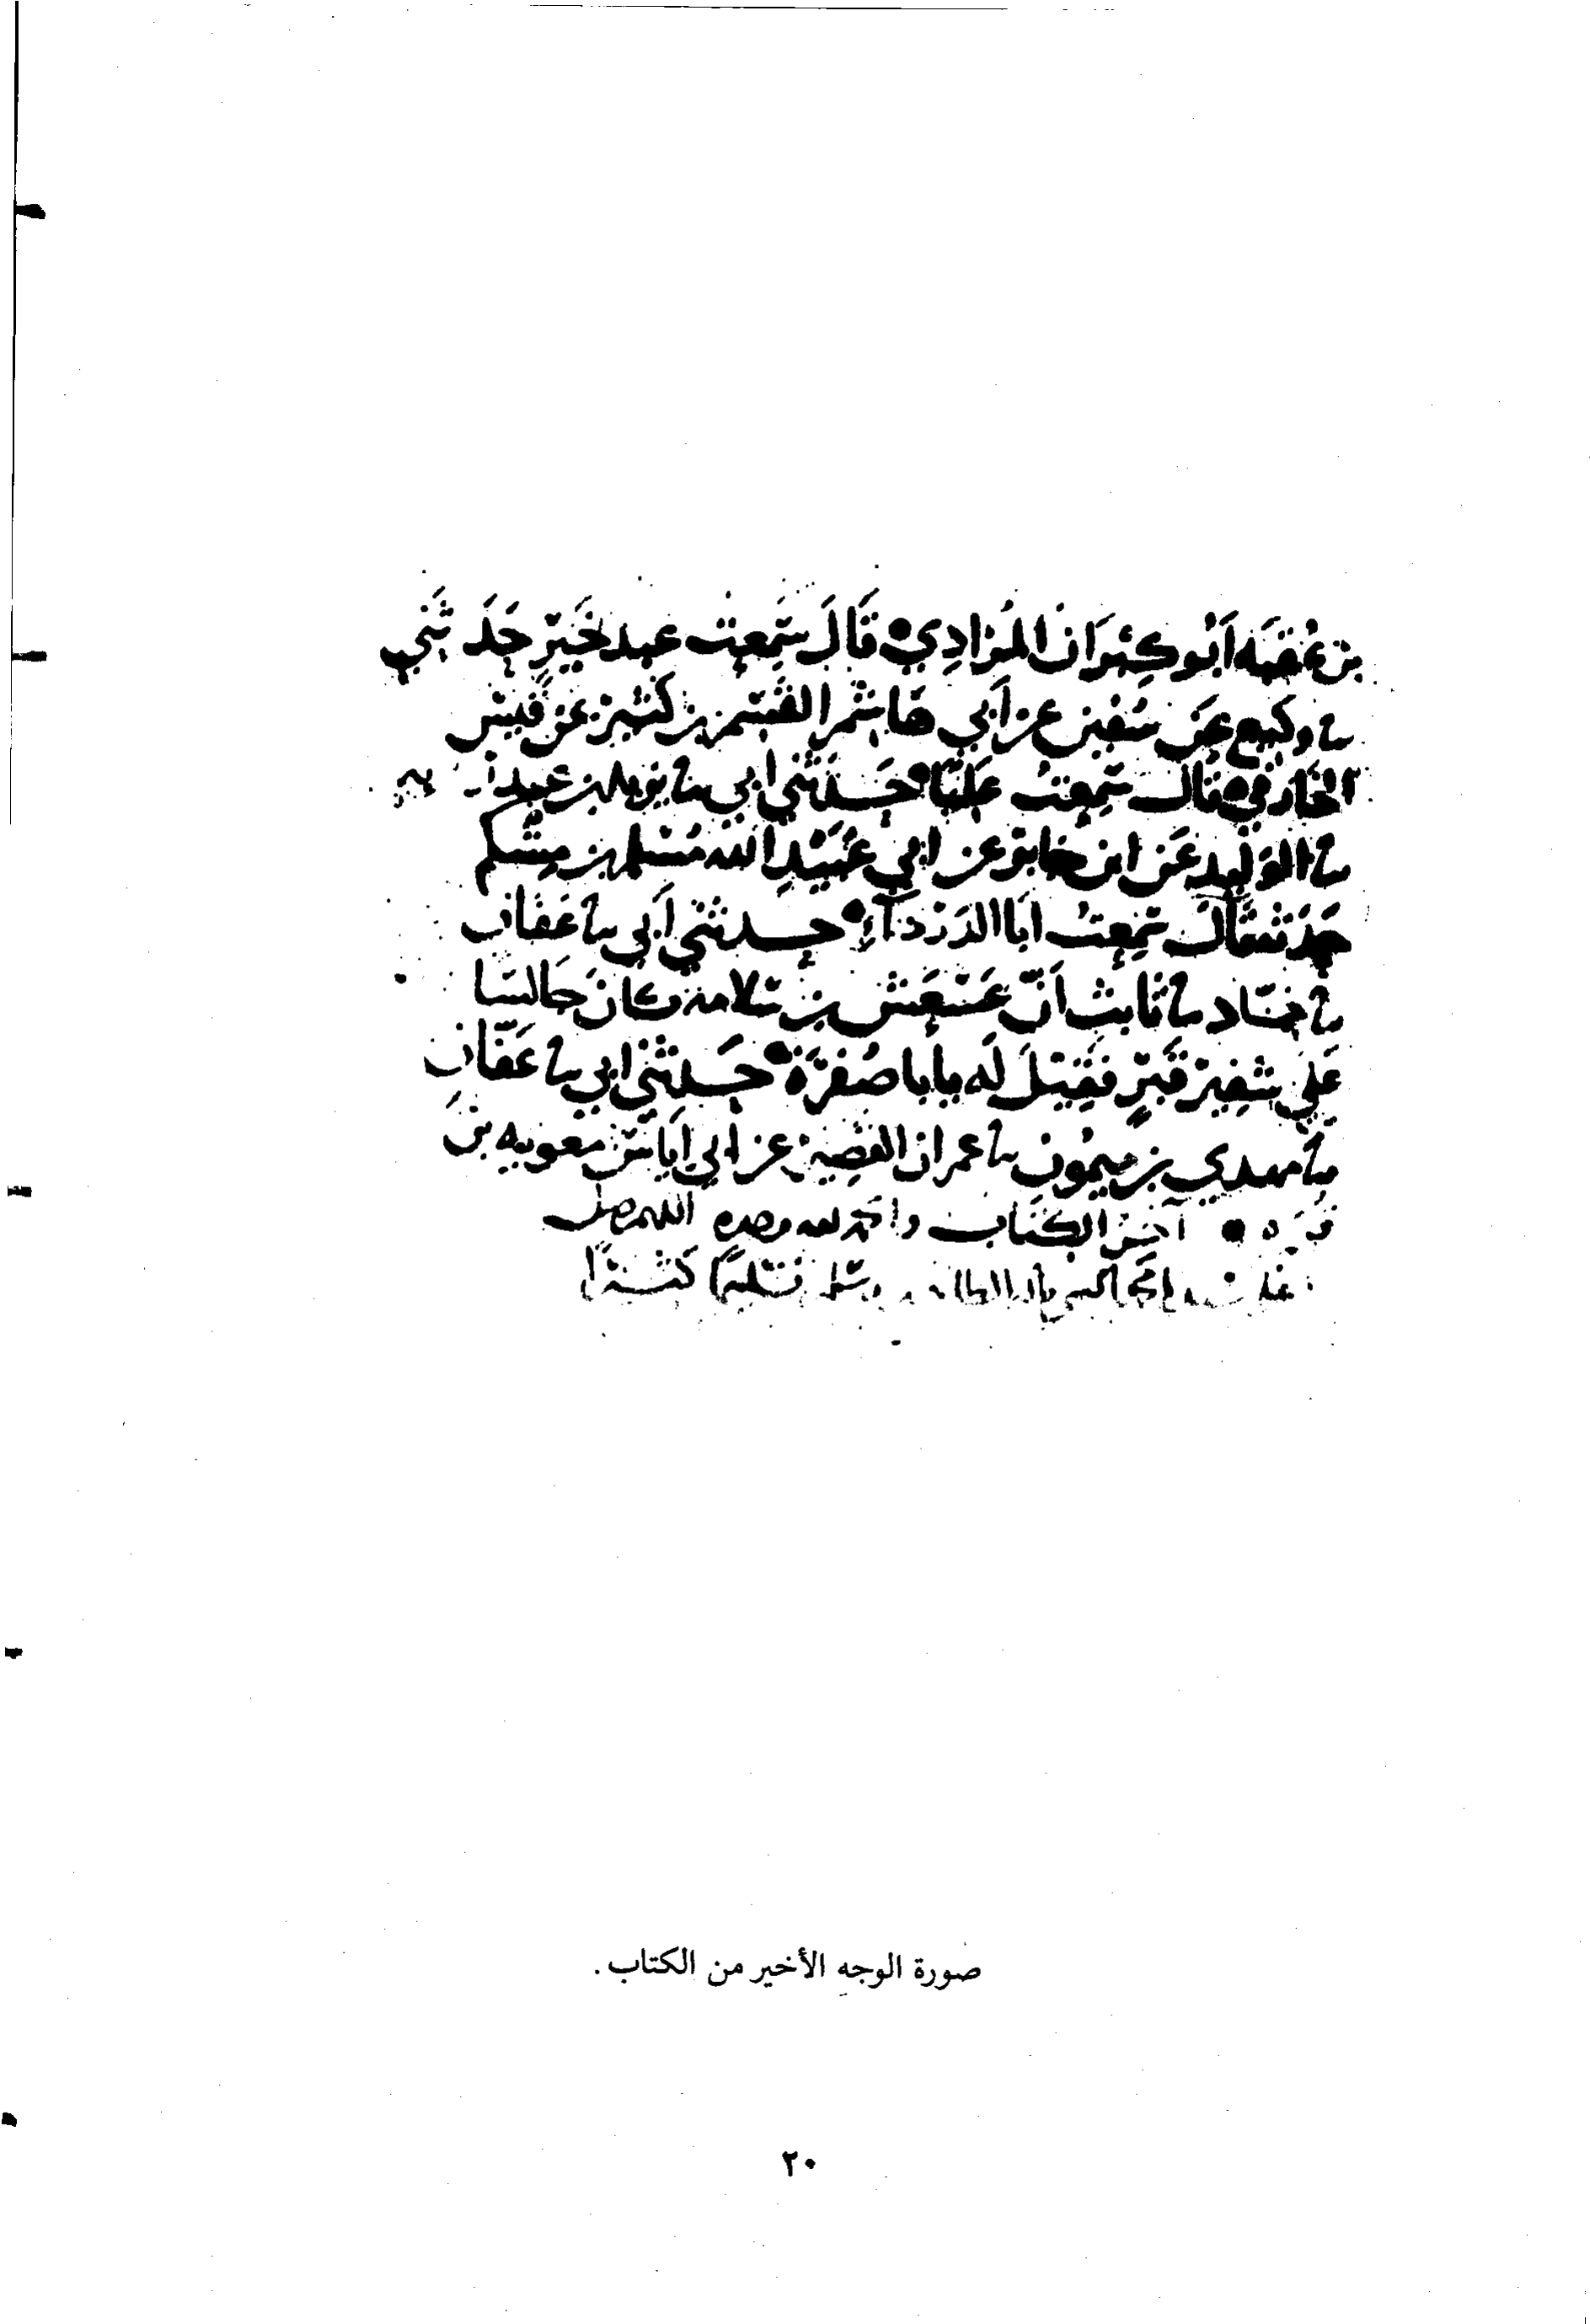 بن عُقبَه أبُو كِبْرَان المُرَادِي قَالَ سَمِعت عبد خَيرٍ حَدَّثني
نا وكيع عَن سُفين عن أبي هَاشم القسم بن كثير عن قيس
الخارفي قال سَمِعتُ عَليًّا حَدثني أبي نا
نا الوَليد عَن ابن جابر عن أبي عُبَيْدِ الله مُسْلم بن مِشكم
قال سَمِعتُ ابَا الدَرْدَآءِ حدثني أبي نا عَفان
نا حمّاد نا ثابت أنّ عَسْعَسَ بن سَلامه كانَ جَالسًا
عَلى شفير قَبرٍ فقيلَ له يابا صُفرَة حَدثني أبي نا عَفّان
نا مهدي بن ميمُون نا عمران القصير عن أبي إيَاس معويه بن
قره آخر الكتاب والحمد لله وحده اللهم صل
كثيرًا
صورة الوجه الأخير من الكتاب .
٢٠